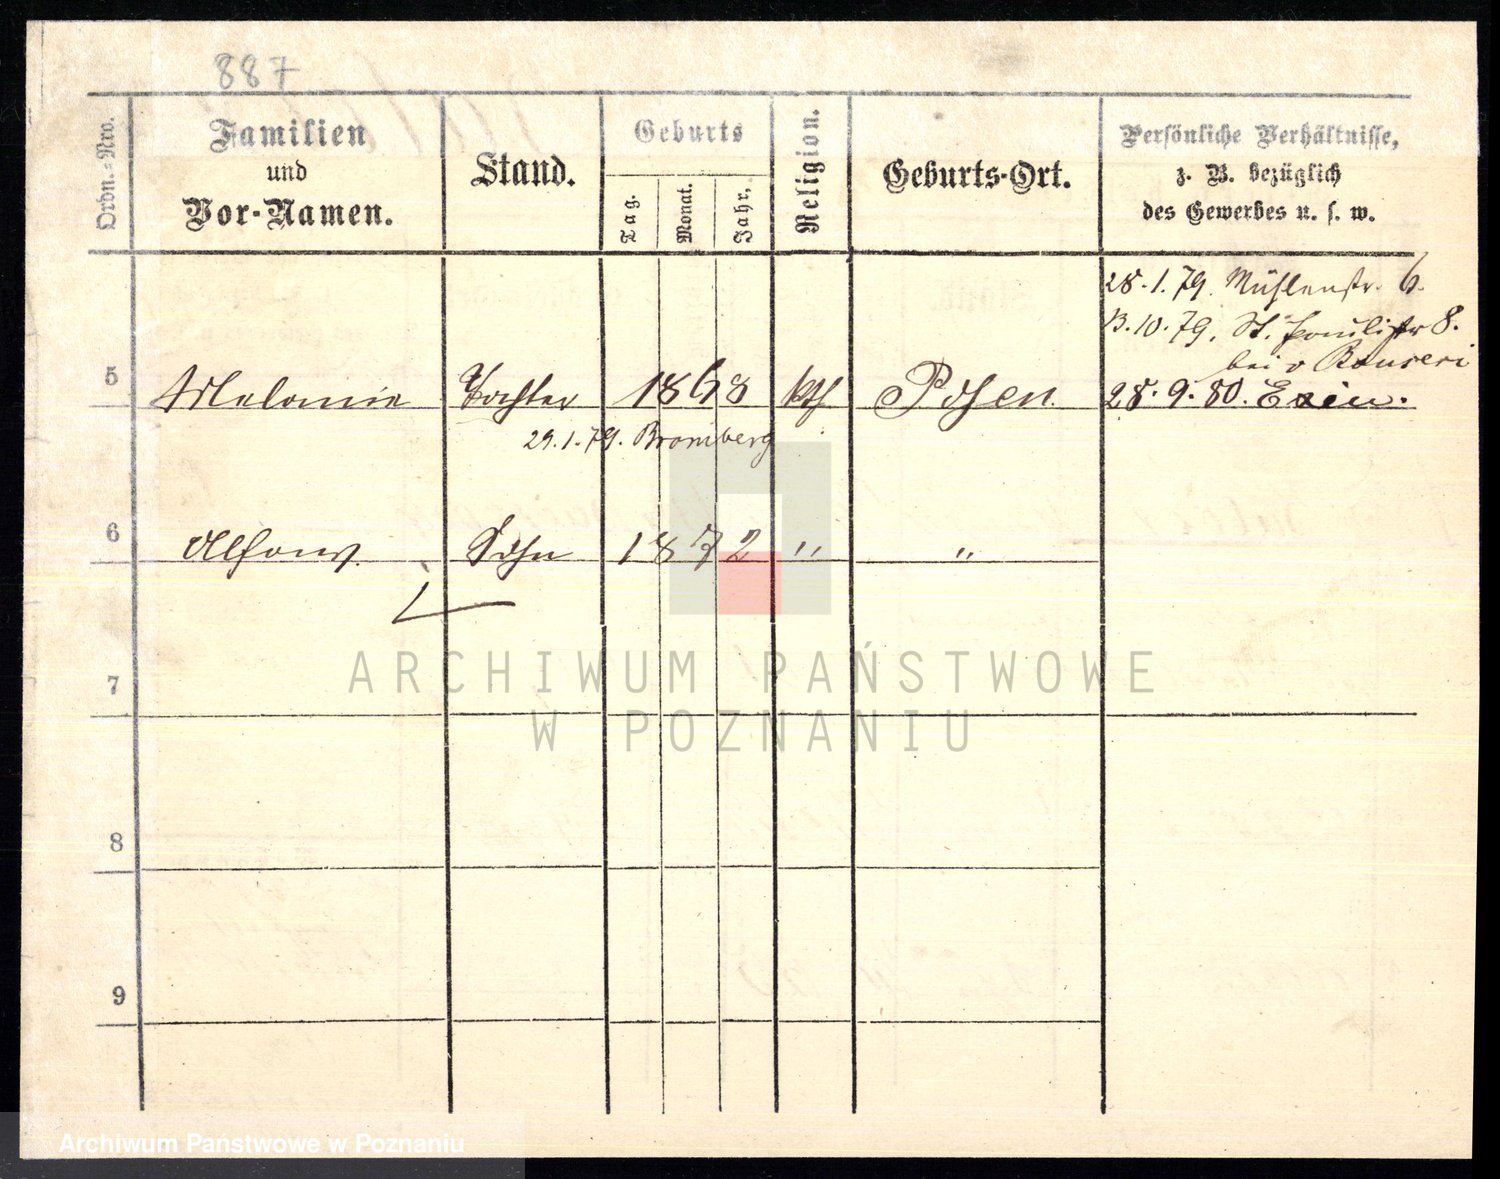 887
Ordn.-Nro.
Familien
und
Vor-Namen.
Stand.
Geburts
Tag.
Monat.
Jahr.
Religion.
Geburts-Ort.
Persönliche Verhältnisse,
z. B. bezüglich
des Gewerbes u. s. w.
28.1.79. Mühlenstr. 6.
13.10.79. St. Paulistr 8.
bei v
5 Melanie Tochter 1868 kth Posen. 28.9.80. Exin.
29.1.79. Bromberg
6 Alfons. Sohn 1872 " "
7
8
9
ARCHIWUM PAŃSTWOWE
W POZNANIU
Archiwum Państwowe w Poznaniu